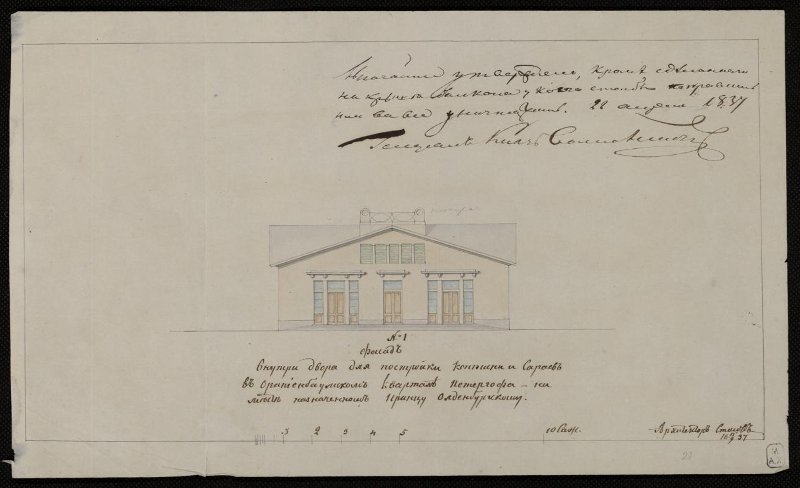 утвержденъ, кроме сделаннаго
на крыше балкона у кого столбы
или вовсе уничтожить. 22 апреля 1837
Генералъ Князь
№ 1
фасадъ
Внутри двора для постройки Конюшни и Сараевъ
въ Ораніенбаумскомъ кварталѣ Петергофа – на
мѣстѣ назначенномъ Принцу Олденбурскому.
1 2 3 4 5 10 саж.
Архитекторъ
1837